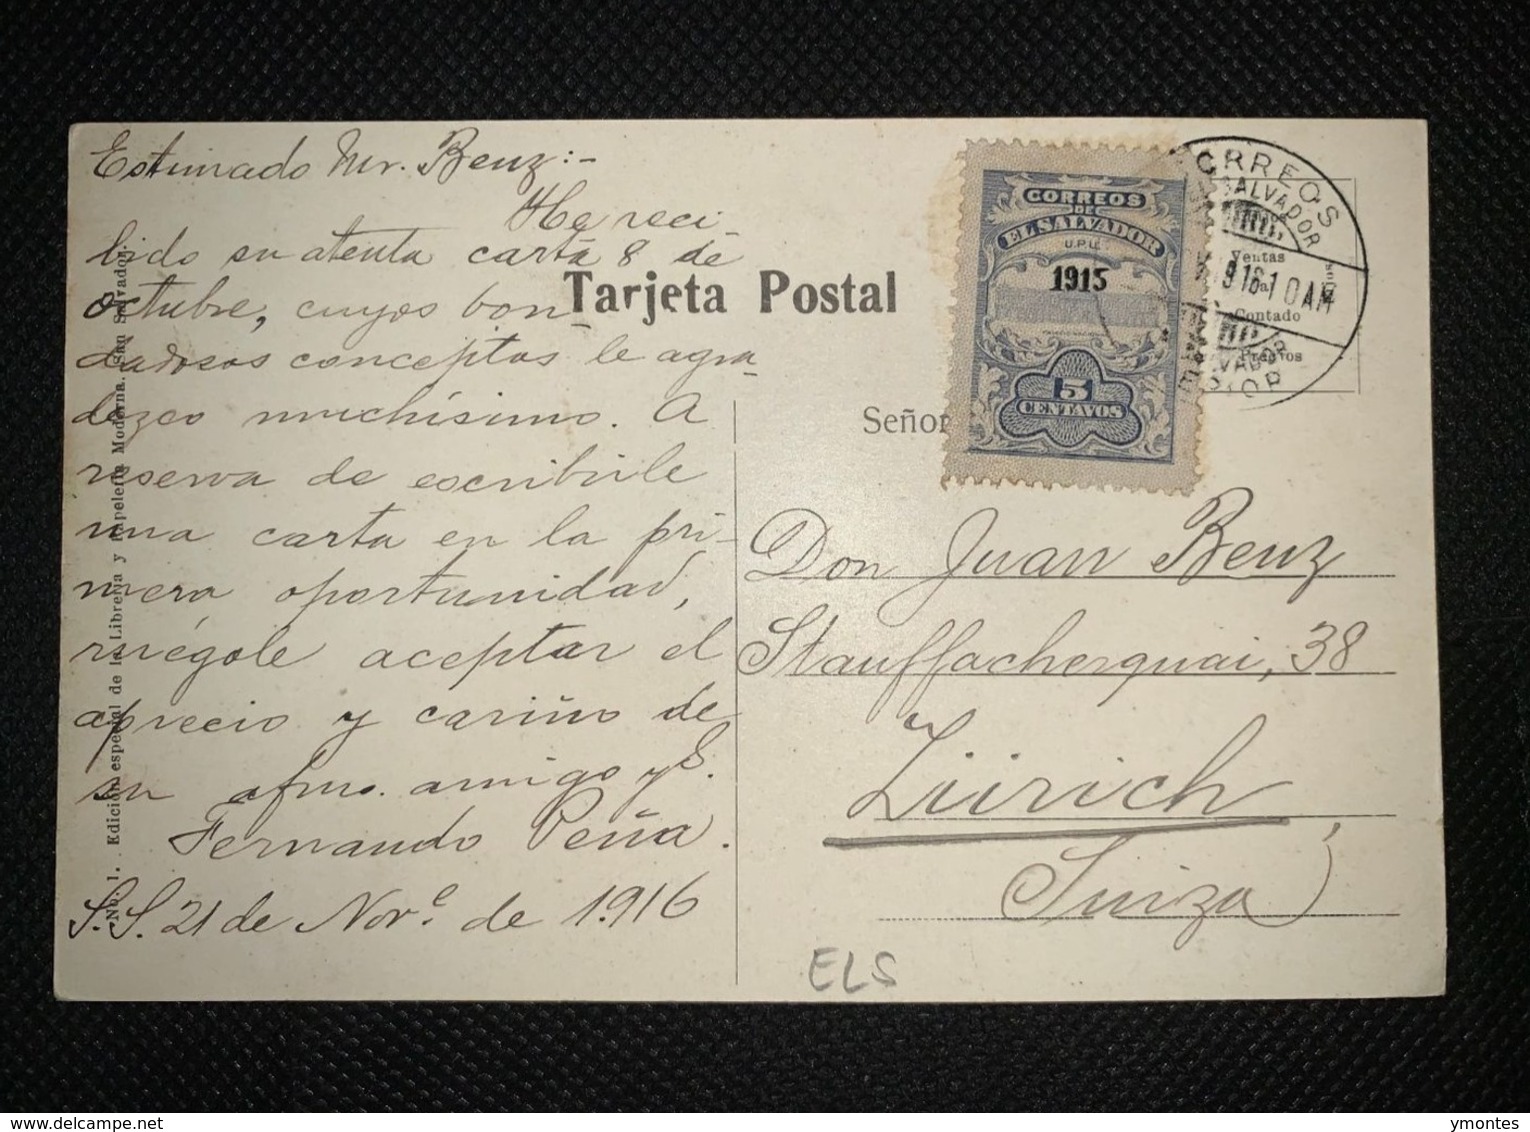 Estimado Mr. Benz:-
He reci-
bido su atenta carta 8 de
octubre, cuyos bon-
dadosos conceptos le agra-
dezco muchísimo. A
reserva de escribirle
una carta en la pri-
mera oportunidad,
ruégole aceptar el
aprecio y cariño de
su afmo. amigo y S.
Fernando Peña.
S.S. 21 de Nov.e de 1916
No. 1. Edición especial de la Librería y Papelería Moderna. San Salvador.
Tarjeta Postal
CORREOS
DE
EL SALVADOR
U.P.U.
1915
5
CENTAVOS
CORREOS
SALVADOR
916-10AM
Ventas
Contado
Precios
Señor
Don Juan Benz
Stauffacherquai, 38
Zürich,
Suiza
ELS
delcampe.net
ymontes